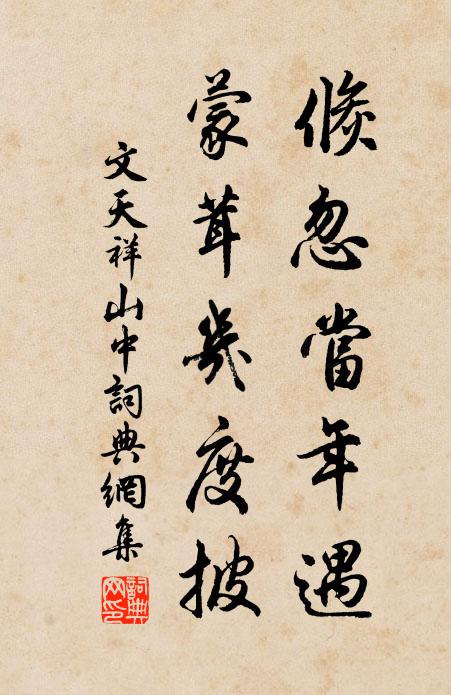 倏忽當年遇
蒙茸幾度披
文天祥山中詞典網集
詞典網印